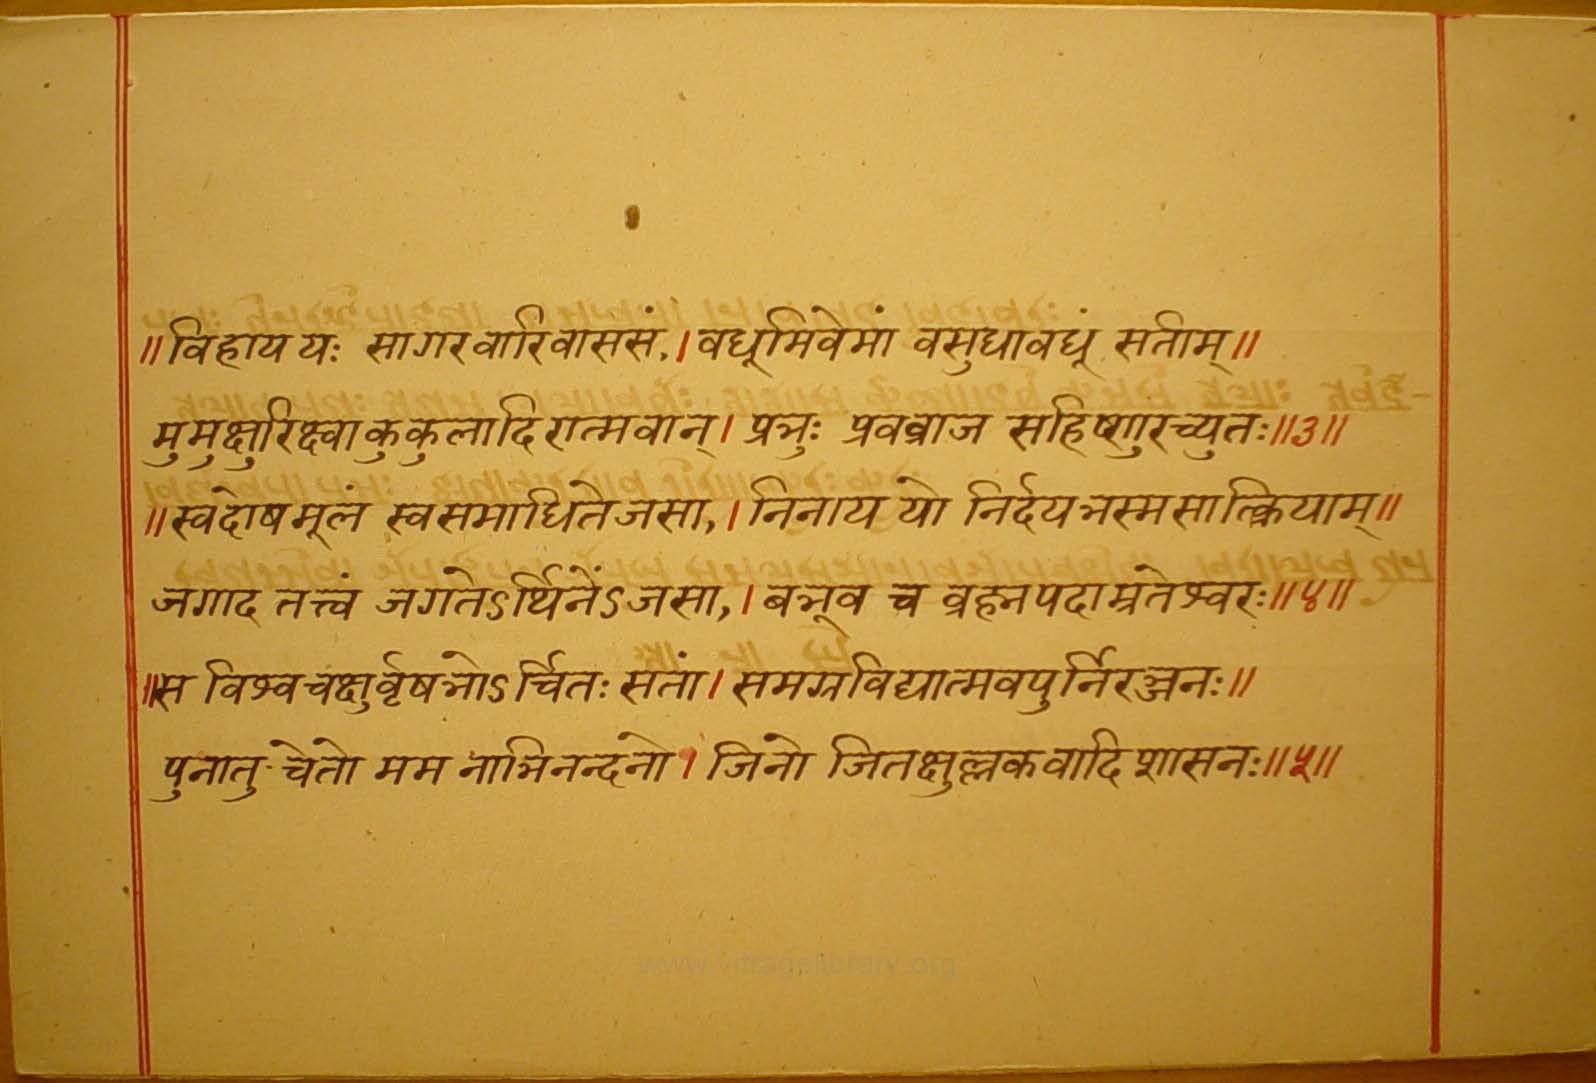 ॥विहाय यः सागरवारिवाससं,।वधूमिवेमां वसुधावधूं सतीम्॥
मुमुक्षुरिक्ष्वाकुकुलादिरात्मवान्।प्रभुः प्रवव्राज सहिष्णुरच्युतः॥३॥
॥स्वदोषमूलं स्वसमाधितेजसा,।निनाय यो निर्दयभस्मसात्क्रियाम्॥
जगाद तत्त्वं जगतेऽर्थिनेंऽजसा,।बभूव च ब्रह्मपदामृतेश्वरः॥४॥
॥स विश्वचक्षुर्वृषभोऽर्चितः सतां।समग्रविद्यात्मवपुर्निरञ्जनः॥
पुनातु चेतो मम नाभिनन्दनो।जिनो जितक्षुल्लकवादिशासनः॥५॥
www.vitragelibrary.org